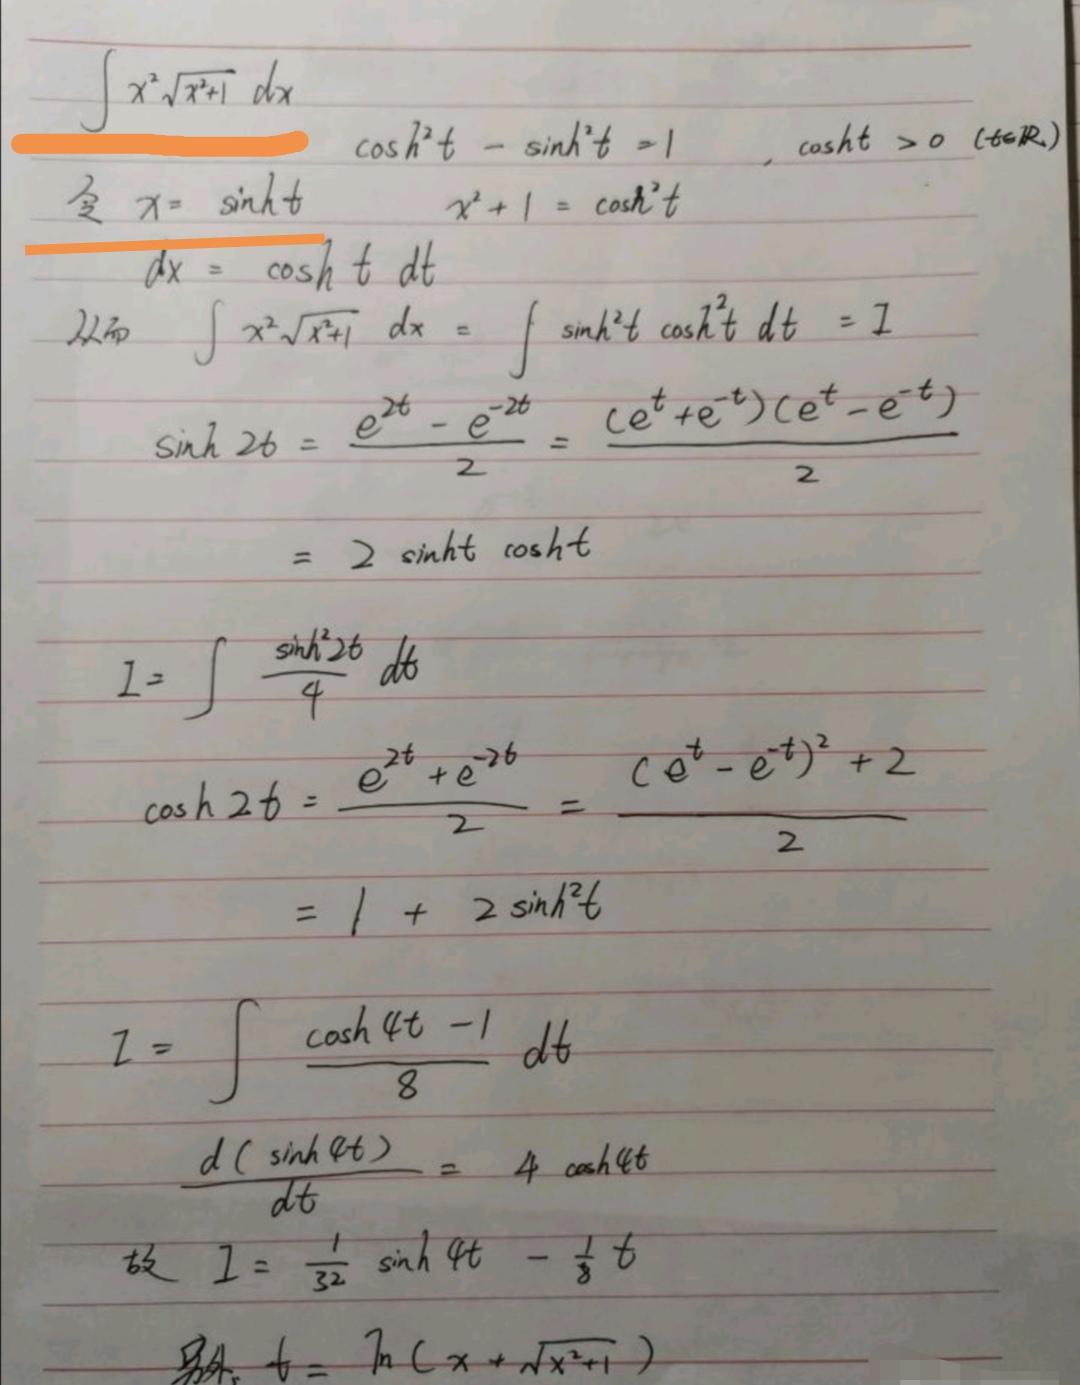 ∫ x²√(x²+1) dx
cosh²t - sinh²t = 1 , cosht > 0 (t∈ℝ.)
令 x = sinh t x²+1 = cosh²t
dx = cosh t dt
从而 ∫ x²√(x²+1) dx = ∫ sinh²t cosh²t dt = I
sinh 2t = (e^{2t} - e^{-2t})/2 = (e^t + e^{-t})(e^t - e^{-t})/2
= 2 sinht cosht
I = ∫ sinh²2t/4 dt
cosh 2t = (e^{2t} + e^{-2t})/2 = ((e^t - e^{-t})² + 2)/2
= 1 + 2 sinh²t
I = ∫ (cosh 4t - 1)/8 dt
d(sinh 4t)/dt = 4 cosh 4t
故 I = 1/32 sinh 4t - 1/8 t
另外, t = ln(x + √(x²+1))